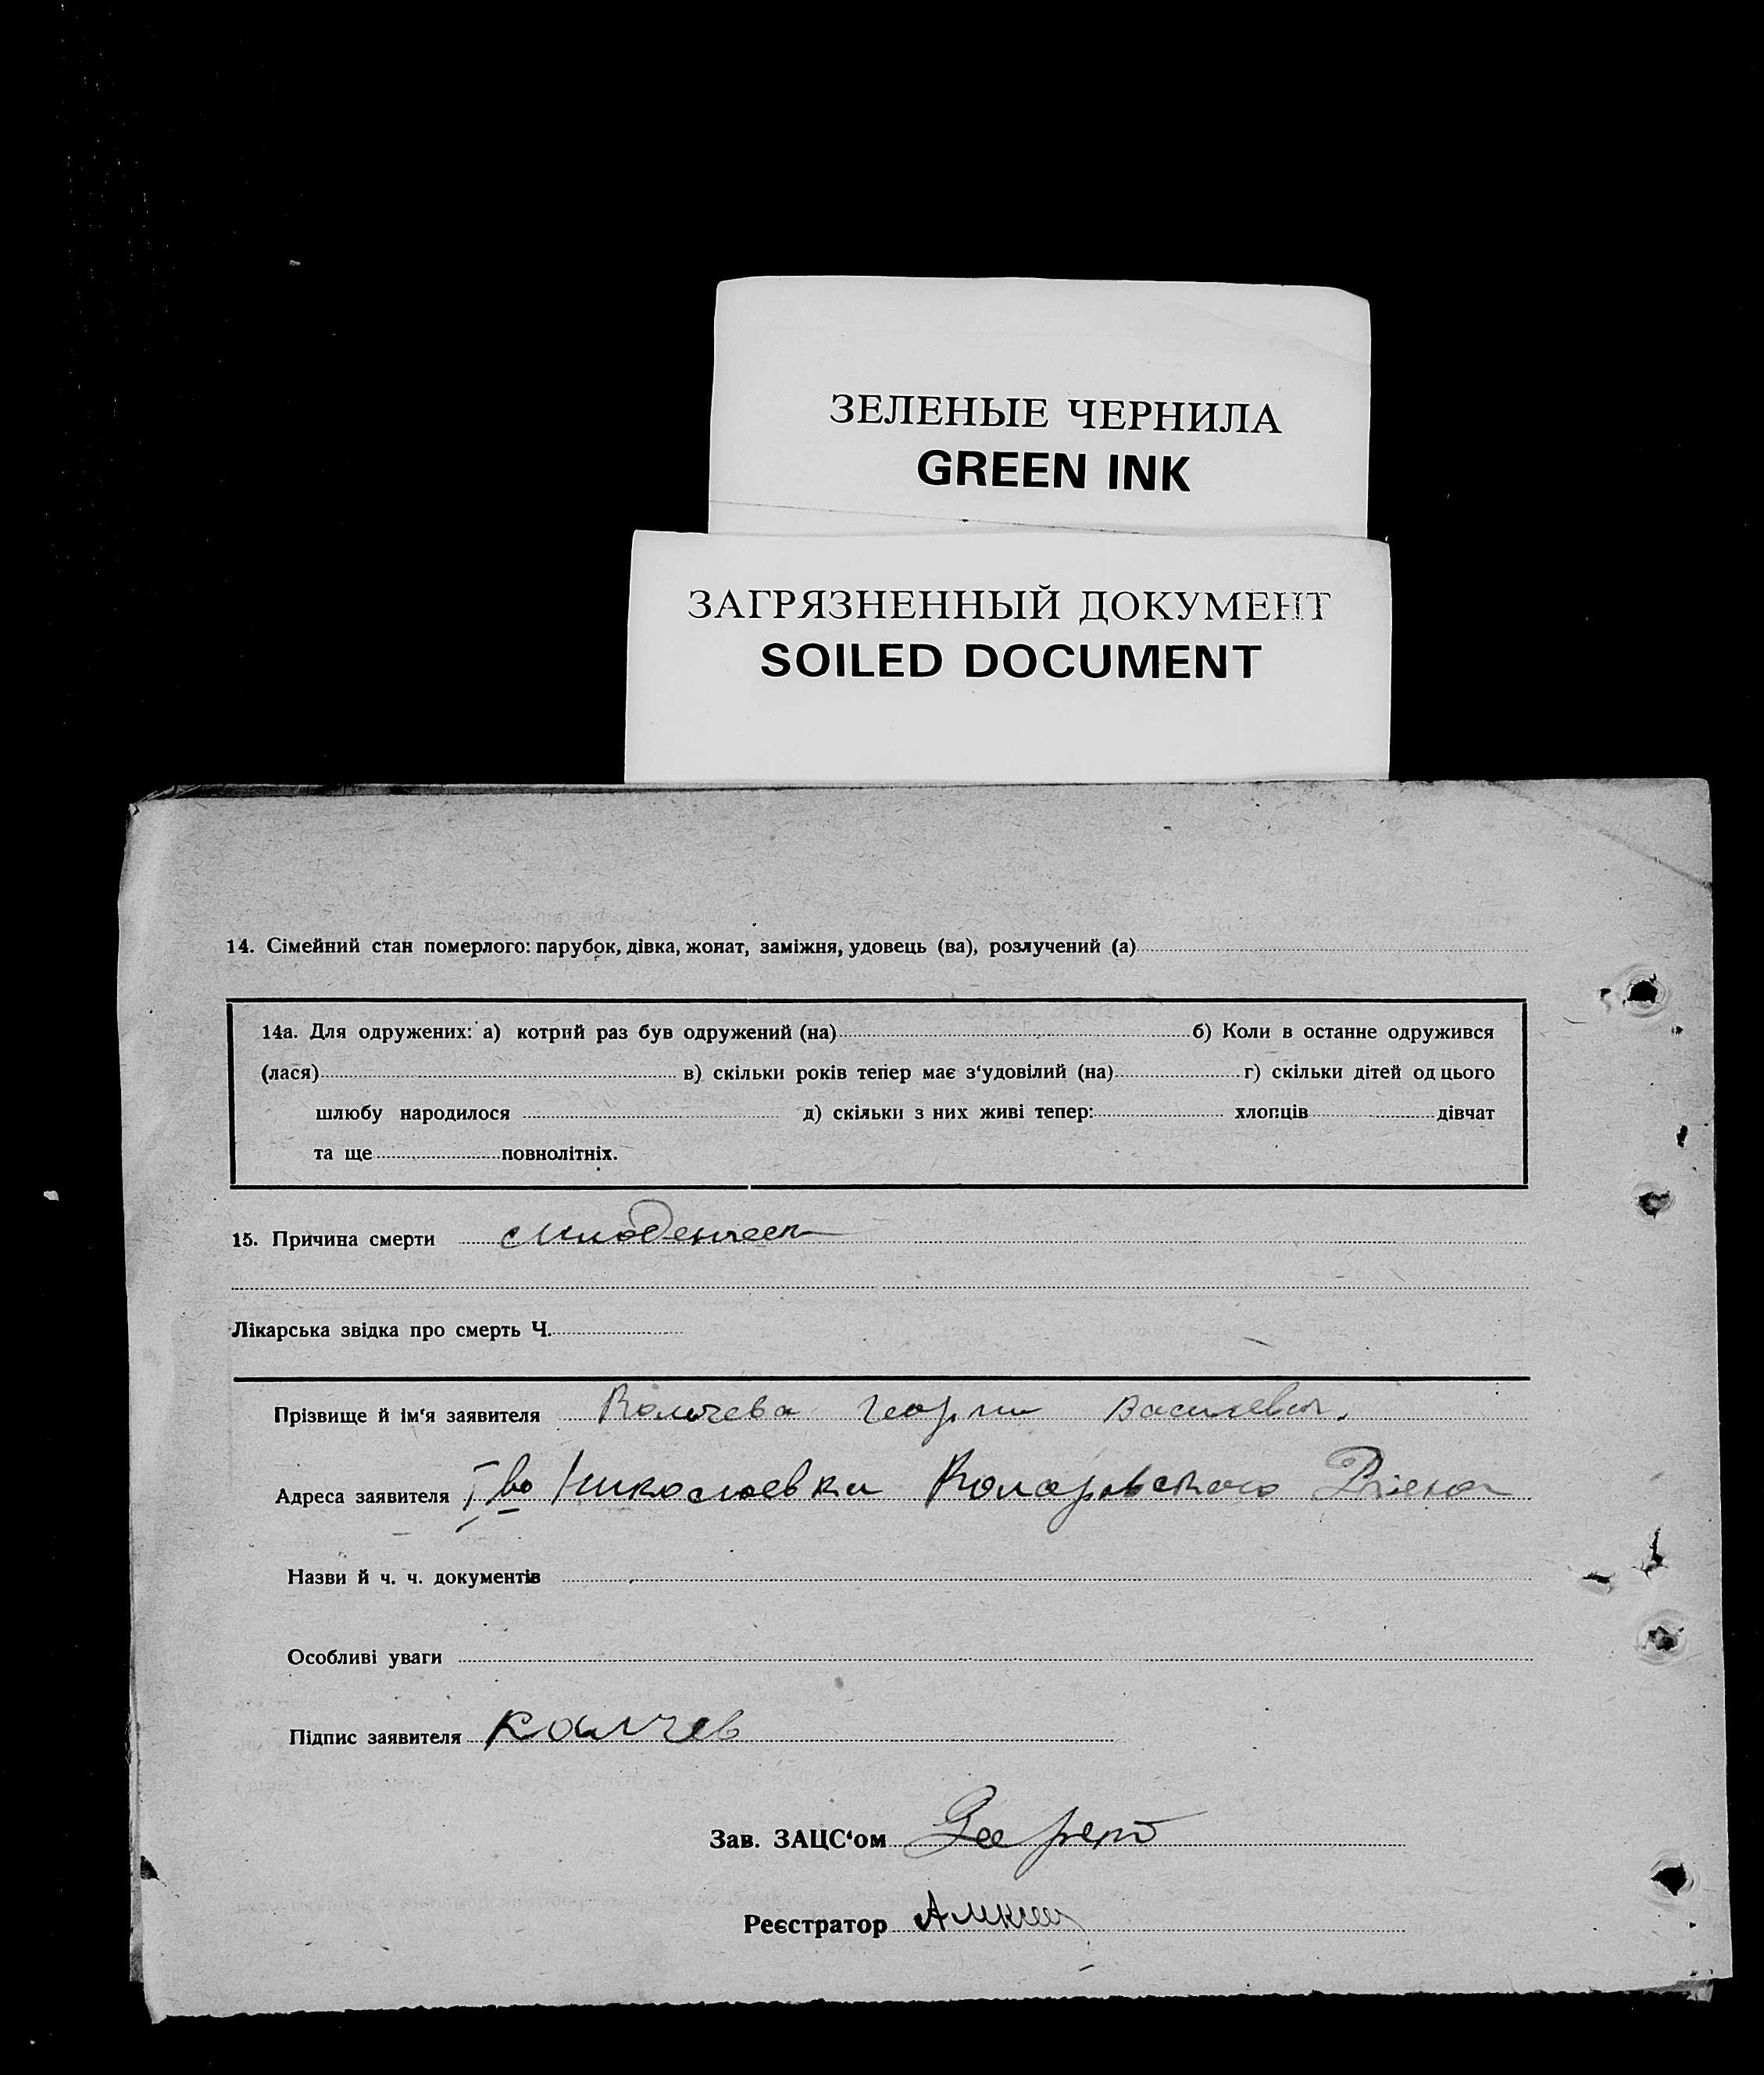 ЗЕЛЕНЫЕ ЧЕРНИЛА
GREEN INK
ЗАГРЯЗНЕННЫЙ ДОКУМЕНТ
SOILED DOCUMENT
14. Сімейний стан померлого: парубок, дівка, жонат, заміжня, удовець (ва), розлучений (а)
14а. Для одружених: а) котрий раз був одружений (на) б) Коли в останне одружився
(лася) в) скільки років тепер має з'удовілий (на) г) скільки дітей од цього
шлюбу народилося д) скільки з них живі тепер: хлопців дівчат
та ще повнолітніх.
15. Причина смерти
Лікарська звідка про смерть Ч.
Прізвище й ім'я заявителя Колчева Георги Василевич.
Адреса заявителя Николаевка Коларовского
Назви й ч. ч. документів
Особливі уваги
Підпис заявителя Калчев
Зав. ЗАЦС'ом
Реєстратор